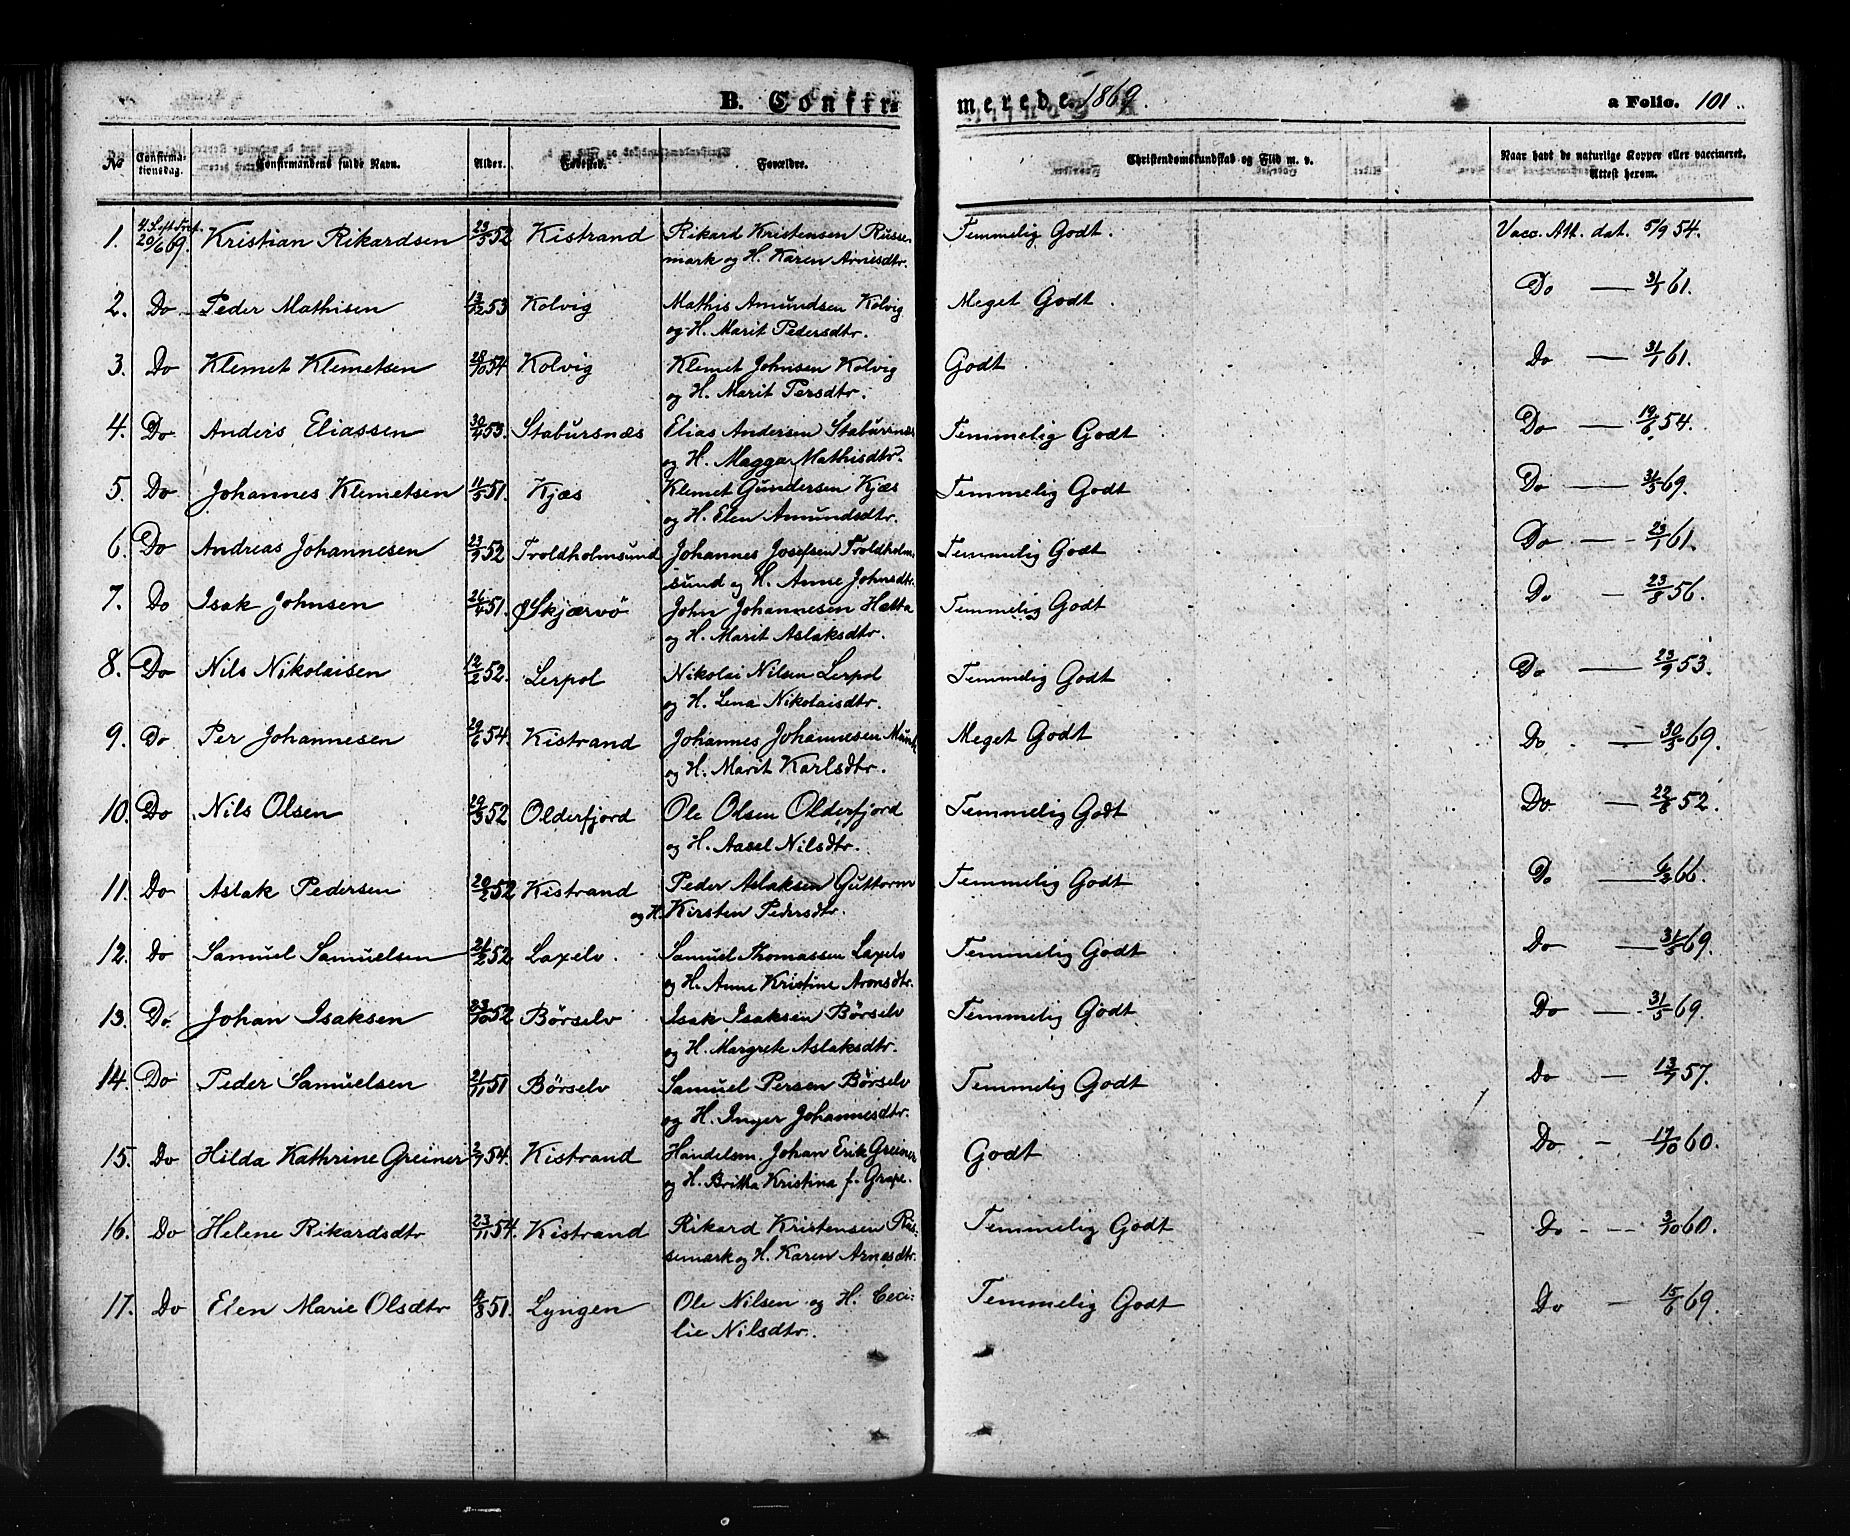 B. Confirmerede. 1869. a Folio. 101.
No Confirmationsdag. Confirmandens fulde Navn. Alder. Fødested. Forældre. Christendomskundskab og Flid m. v. Naar havt de naturlige Kopper eller vaccineret. Attest herom.
1. 4. S. eft. Tref. 20/6 69. Kristian Rikardsen 23/5 52 Kistrand Rikard Kristensen Russe- Temmelig Godt. Vacc. Att. dat. 5/9 54.
mark og H. Karen Arnesdtr.
2. Do Peder Mathisen 13/12 53 Kolvig Mathis Amundsen Kolvig Meget Godt. Do — 31/1 61.
og H. Marit Pedersdtr.
3. Do Klemet Klemetsen 28/10 54 Kolvig Klemet Johnsen Kolvig Godt Do — 31/1 61.
og H. Marit Persdtr.
4. Do Anders Eliassen 30/4 53. Stabursnæs Elias Andersen Stabursnæs Temmelig Godt Do — 19/6 54.
og H. Magga Mathisdtr.
5. Do Johannes Klemetsen 11/5 51. Kjæs Klemet Gundersen Kjæs Temmelig Godt Do — 31/5 69.
og H. Elen Amundsdtr.
6. Do Andreas Johannesen 23/9 52 Troldholmsund Johannes Josefsen Troldholm- Temmelig Godt Do — 23/1 61.
sund og H. Anne Johnsdtr.
7. Do Isak Johnsen 26/4 51. Skjærvö John Johannesen Hætta Temmelig Godt Do — 23/8 56.
og H. Marit Aslaksdtr.
8. Do Nils Nikolaisen 12/2 52. Lerpol Nikolai Nilsen Lerpol Temmelig Godt Do — 23/9 53.
og H. Lena Nikolaisdtr.
9. Do Per Johannesen 29/6 54. Kistrand Johannes Johannesen Meget Godt Do — 30/5 69.
og H. Marit Karlsdtr.
10. Do Nils Olsen 29/5 52 Olderfjord Ole Olsen Olderfjord Temmelig Godt Do — 22/8 52.
og H. Aasel Nilsdtr.
11. Do Aslak Pedersen 20/2 52 Kistrand Peder Aslaksen Guttorm Temmelig Godt Do — 66.
og H. Kirsten Pedersdtr.
12. Do Samuel Samuelsen 21/2 52 Laxelv. Samuel Thomassen Laxelv Temmelig Godt Do — 31/5 69.
og H. Anne Kristine Aronsdtr.
13. Do. Johan Isaksen 23/10 52 Börselv Isak Isaksen Börselv Temmelig Godt Do — 31/5 69.
og H. Margrete Aslaksdtr.
14. Do Peder Samuelsen 21/11 51 Börselv Samuel Persen Börselv Temmelig Godt Do — 13/7 57.
og H. Inger Johannesdtr.
15. Do Hilda Kathrine Greiner 2/7 54. Kistrand Handelsm. Johan Erik Greiner Godt Do - 17/10 60.
og H. Britta Kristina f. Grape.
16. Do Helene Rikardsdtr 23/11 54. Kistrand Rikard Kristensen Rus- Temmelig Godt Do - — 3/10 60.
semark og H. Karen Arnesdtr.
17. Do Elen Marie Olsdtr 51. Lyngen Ole Nilsen og H. Ceci- Temmelig Godt Do — 15/6 69.
lie Nilsdtr.